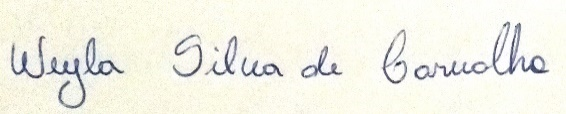 Weyla Silva de Carvalho